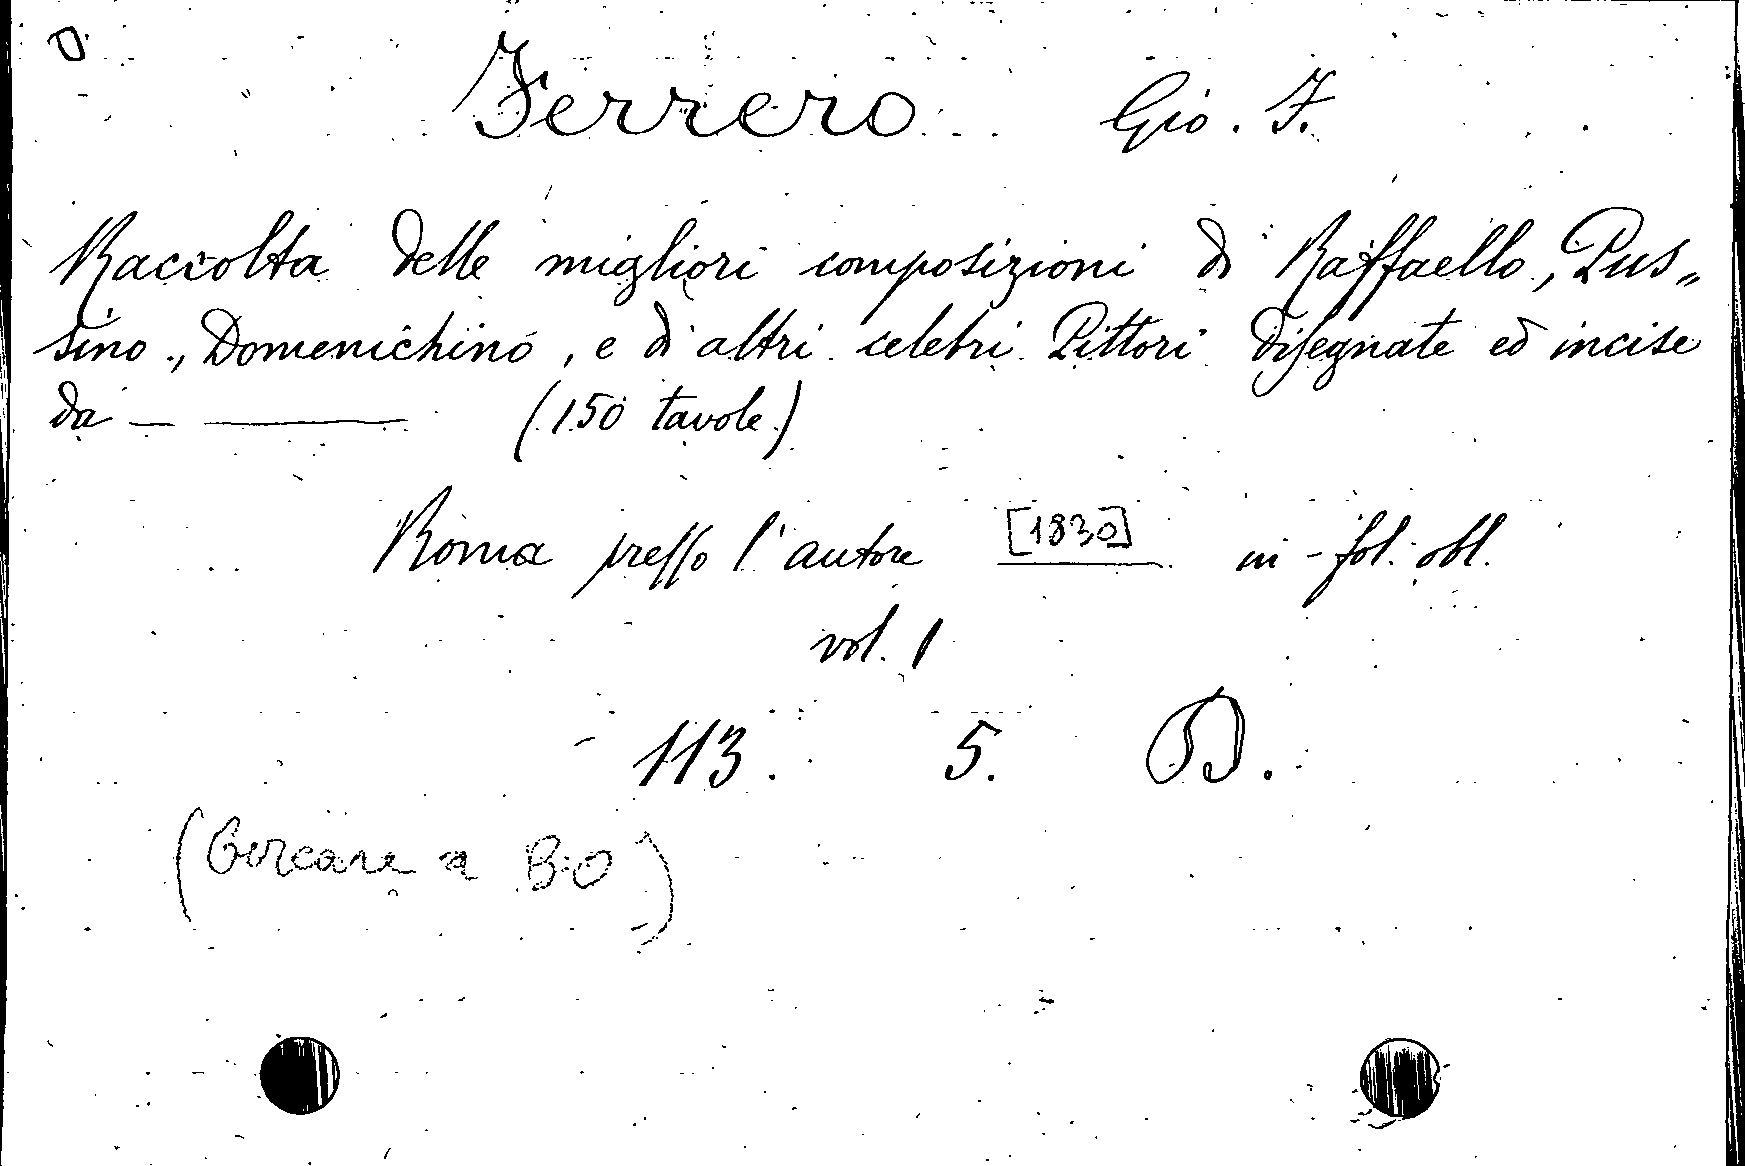 Ferrero Gio. F.
Raccolta delle migliori composizioni di Raffaello, Pus=
sino, Domenichino, e di altri celebri Pittori disegnate ed incise
da — ——— (150 tavole)
Roma presso l'autore [1830] in-fol. obl.
vol. 1
113. 5. D.
(Cercare a BO)